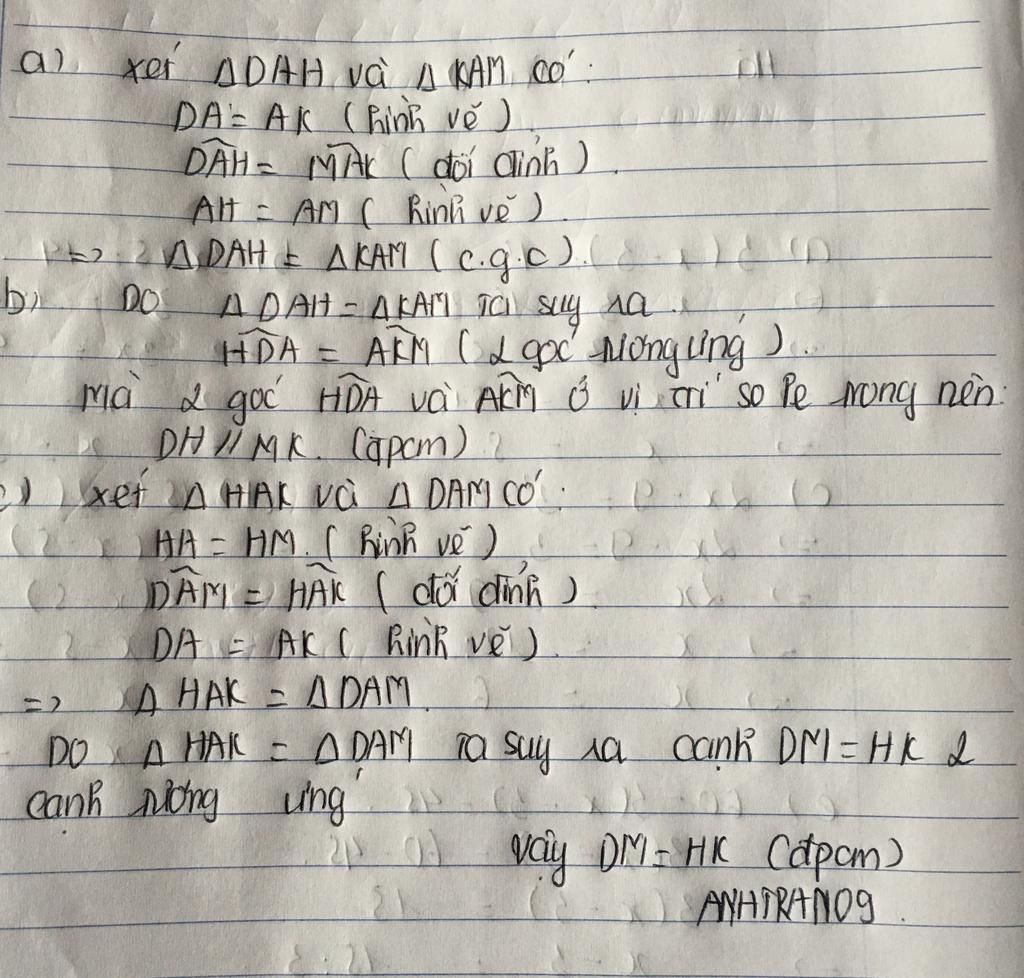 a) xét ΔDAH và ΔKAM có:
DA = AK (hình vẽ)
\widehat{DAH} = \widehat{MAK} (đối đỉnh).
AH = AM (hình vẽ).
=> ΔDAH = ΔKAM (c.g.c).
b) DO ΔDAH = ΔKAM ta suy ra
\widehat{HDA} = \widehat{AKM} (2 góc tương ứng).
Mà 2 góc \widehat{HDA} và \widehat{AKM} ở vị trí so le trong nên:
DH // MK. (đpcm)
c) xét ΔHAK và ΔDAM có:
HA = HM. (hình vẽ)
\widehat{DAM} = \widehat{HAK} (đối đỉnh).
DA = AK (hình vẽ).
=> ΔHAK = ΔDAM.
DO ΔHAK = ΔDAM ta suy ra cạnh DM = HK 2
cạnh tương ứng
Vậy DM = HK (đpcm)
ANHTRAN09.